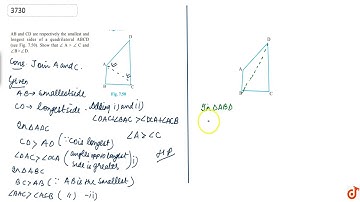 3730
AB and CD are respectively the smallest and
longest sides of a quadrilateral ABCD
(see Fig. 7.50). Show that ∠A > ∠C and
∠B > ∠D.
Fig. 7.50
Cons. Join A and C.
Given
AB → smallest side
CD → longest side.
In ΔADC
CD > AD (∵ CD is longest)
∠DAC > ∠DCA (angles opp. to largest side is greater) i)
In ΔABC
BC > AB (∵ AB is the smallest)
∠BAC > ∠ACB (ii) -ii)
Adding i) and ii)
∠DAC + ∠BAC > ∠DCA + ∠ACB
∠A > ∠C
H.P
D
A
B
C
D
A
B
C
In ΔABD